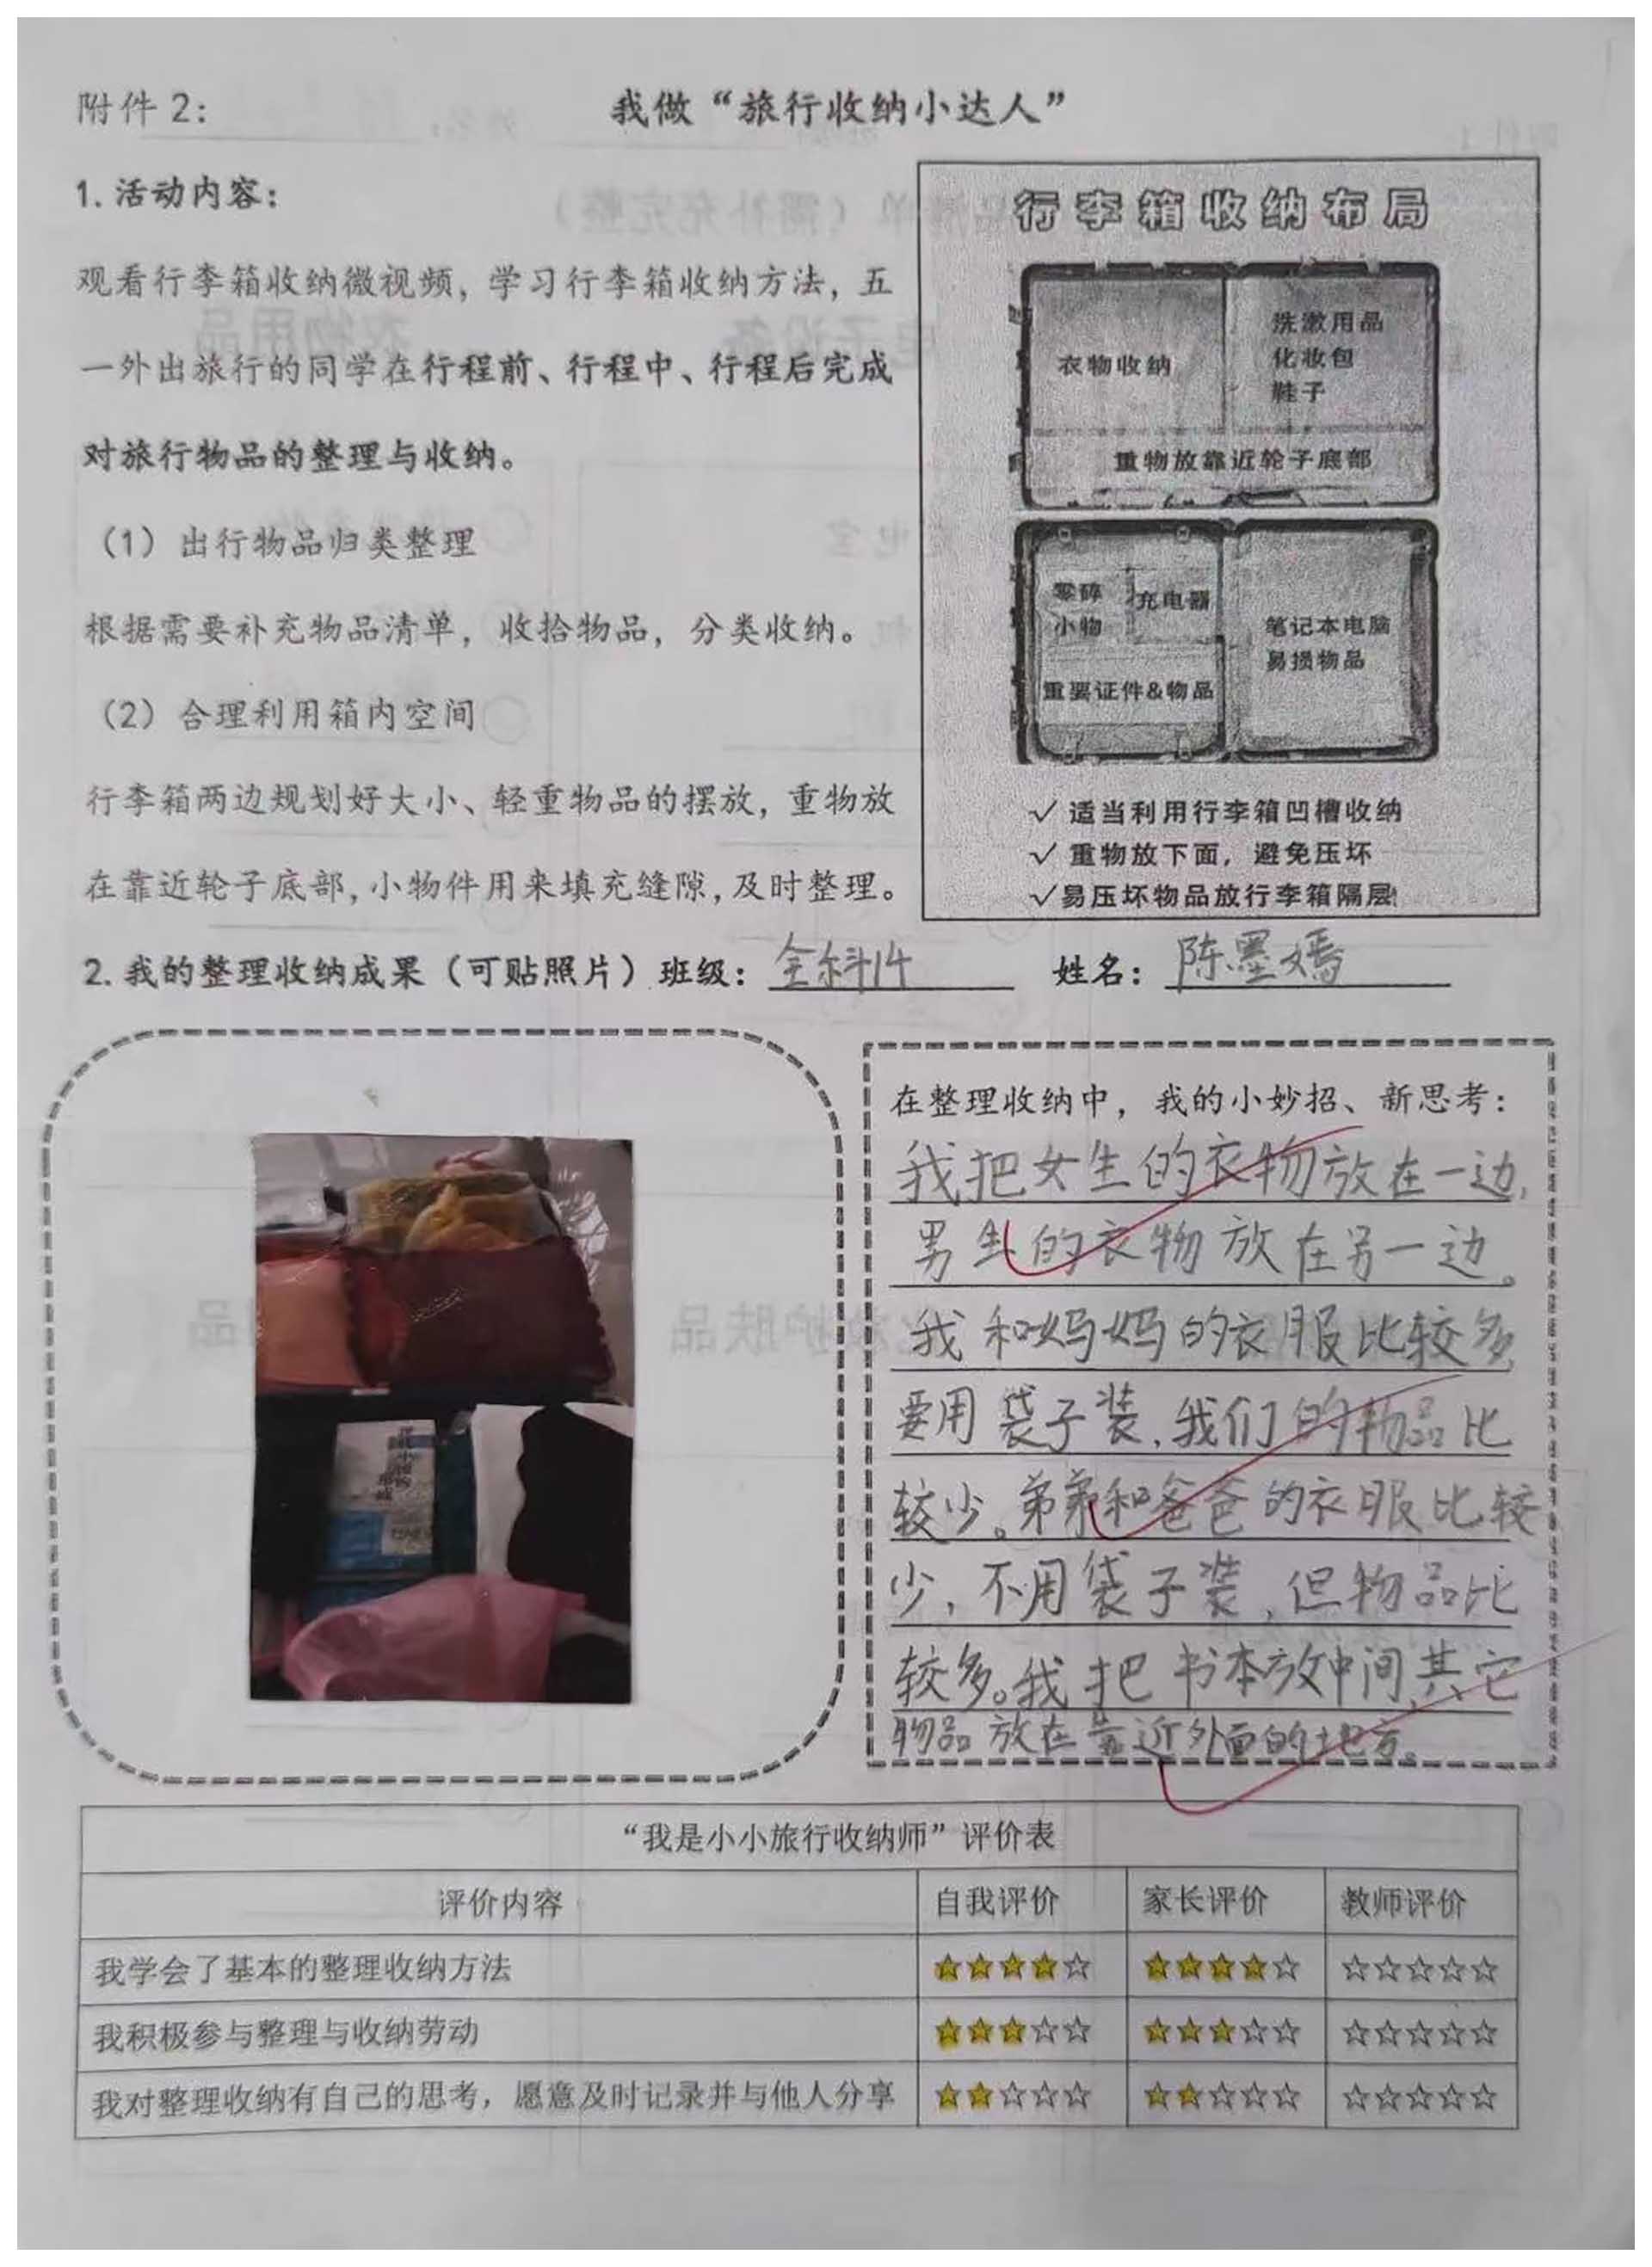 附件 2：
我做“旅行收纳小达人”
1. 活动内容：
观看行李箱收纳微视频，学习行李箱收纳方法，五
一外出旅行的同学在行程前、行程中、行程后完成
对旅行物品的整理与收纳。
（1）出行物品归类整理
根据需要补充物品清单，收拾物品，分类收纳。
（2）合理利用箱内空间
行李箱两边规划好大小、轻重物品的摆放，重物放
在靠近轮子底部，小物件用来填充缝隙，及时整理。
行李箱收纳布局
衣物收纳
洗漱用品
化妆包
鞋子
重物放靠近轮子底部
零碎
小物
充电器
重要证件&物品
笔记本电脑
易损物品
✓ 适当利用行李箱凹槽收纳
✓ 重物放下面，避免压坏
✓易压坏物品放行李箱隔层
2. 我的整理收纳成果（可贴照片）班级：全科14 姓名：陈墨嫣
在整理收纳中，我的小妙招、新思考：
我把女生的衣物放在一边，
男生的衣物放在另一边。
我和妈妈的衣服比较多
要用袋子装，我们的物品比
较少。弟弟和爸爸的衣服比较
少，不用袋子装，但物品比
较多。我把书本放中间，其它
物品放在靠近外面的地方。
“我是小小旅行收纳师”评价表
评价内容 自我评价 家长评价 教师评价
我学会了基本的整理收纳方法 ★★★★☆ ★★★★☆ ☆☆☆☆☆
我积极参与整理与收纳劳动 ★★★☆☆ ★★★☆☆ ☆☆☆☆☆
我对整理收纳有自己的思考，愿意及时记录并与他人分享 ★★☆☆☆ ★★☆☆☆ ☆☆☆☆☆